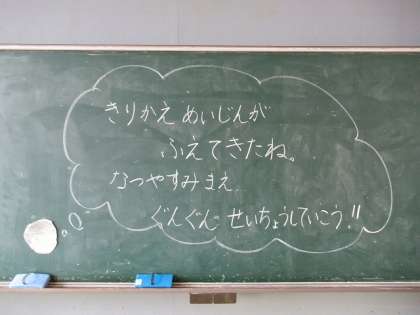 きりかえ めいじんが
ふえてきたね。
なつやすみまえ
ぐんぐん せいちょうしていこう!!